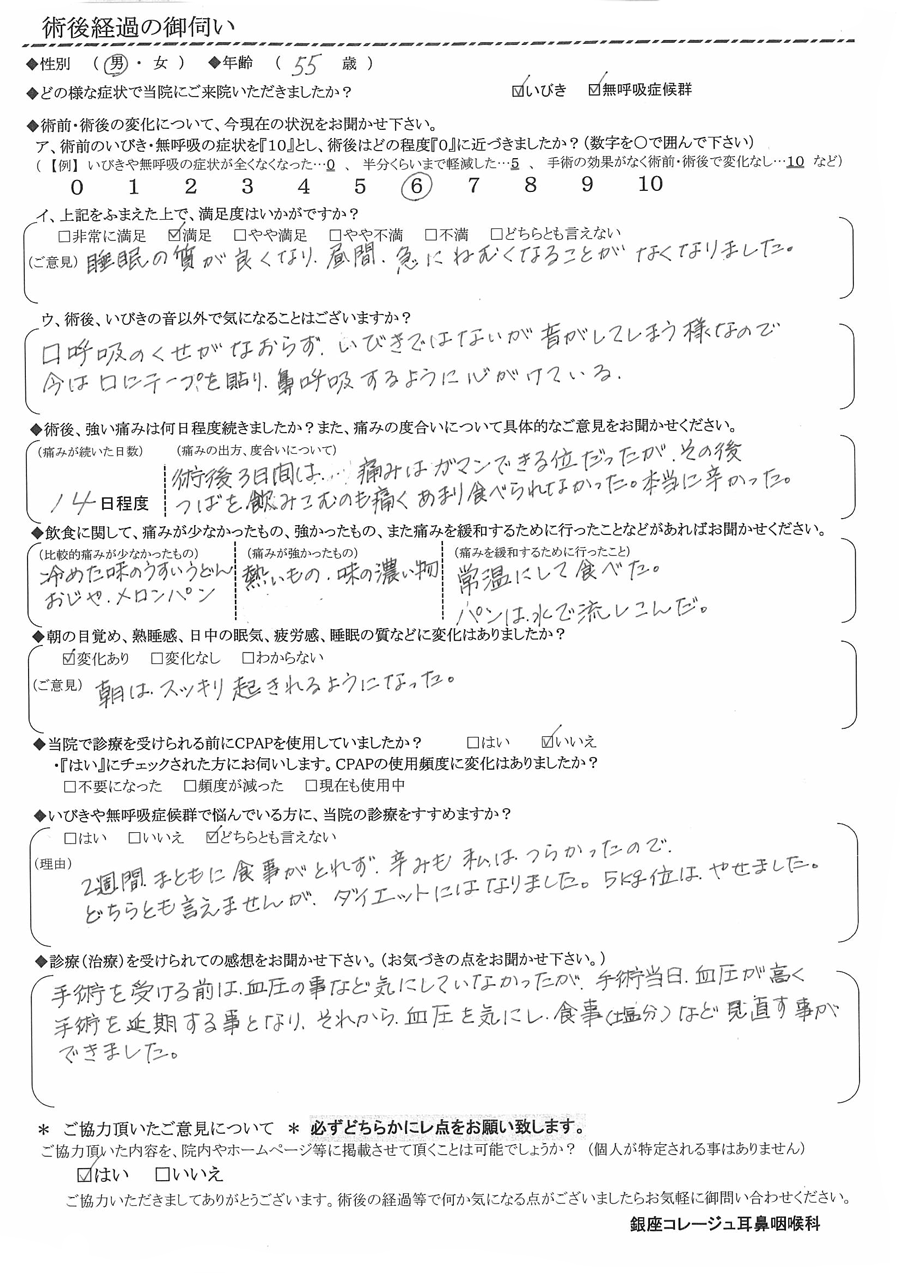 術後経過の御伺い
◆性別 （ 男 ・ 女 ） ◆年齢 （ 55 歳 ）
◆どの様な症状で当院にご来院いただきましたか？ ☑いびき ☑無呼吸症候群
◆術前・術後の変化について、今現在の状況をお聞かせ下さい。
ア、術前のいびき・無呼吸の症状を『10』とし、術後はどの程度『0』に近づきましたか？（数字を○で囲んで下さい）
（【例】いびきや無呼吸の症状が全くなくなった…0 、 半分くらいまで軽減した…5 、 手術の効果がなく術前・術後で変化なし…10 など）
0 1 2 3 4 5 6 7 8 9 10
イ、上記をふまえた上で、満足度はいかがですか？
□非常に満足 ☑満足 □やや満足 □やや不満 □不満 □どちらとも言えない
（ご意見） 睡眠の質が良くなり、昼間、急にねむくなることがなくなりました。
ウ、術後、いびきの音以外で気になることはございますか？
口呼吸のくせがなおらず、いびきではないが音がしてしまう様なので
今は口にテープを貼り、鼻呼吸するように心がけている。
◆術後、強い痛みは何日程度続きましたか？また、痛みの度合いについて具体的なご意見をお聞かせください。
（痛みが続いた日数） （痛みの出方、度合いについて）
術後3日間は、… 痛みはガマンできる位だったが、その後
14日程度 つばを飲みこむのも痛くあまり食べられなかった。本当に辛かった。
◆飲食に関して、痛みが少なかったもの、強かったもの、また痛みを緩和するために行ったことなどがあればお聞かせください。
（比較的痛みが少なかったもの） （痛みが強かったもの） （痛みを緩和するために行ったこと）
冷めた味のうすいうどん 熱いもの・味の濃い物 常温にして食べた。
おじや、メロンパン パンは、水で流しこんだ。
◆朝の目覚め、熟睡感、日中の眠気、疲労感、睡眠の質などに変化はありましたか？
☑変化あり □変化なし □わからない
（ご意見） 朝は、スッキリ起きれるようになった。
◆当院で診療を受けられる前にCPAPを使用していましたか？ □はい ☑いいえ
・『はい』にチェックされた方にお伺いします。CPAPの使用頻度に変化はありましたか？
□不要になった □頻度が減った □現在も使用中
◆いびきや無呼吸症候群で悩んでいる方に、当院の診療をすすめますか？
□はい □いいえ ☑どちらとも言えない
（理由） 2週間、まともに食事がとれず、辛みも私は、つらかったので、
どちらとも言えませんが、ダイエットにはなりました。5kg位は、やせました。
◆診療（治療）を受けられての感想をお聞かせ下さい。（お気づきの点をお聞かせ下さい。）
手術を受ける前は、血圧の事など気にしていなかったが、手術当日、血圧が高く
手術を延期する事となり、それから、血圧を気にし、食事（塩分）など見直す事が
できました。
＊ ご協力頂いたご意見について ＊ 必ずどちらかにレ点をお願い致します。
ご協力頂いた内容を、院内やホームページ等に掲載させて頂くことは可能でしょうか？ （個人が特定される事はありません）
☑はい □いいえ
ご協力いただきましてありがとうございます。術後の経過等で何か気になる点がございましたらお気軽に御問い合わせください。
銀座コレージュ耳鼻咽喉科